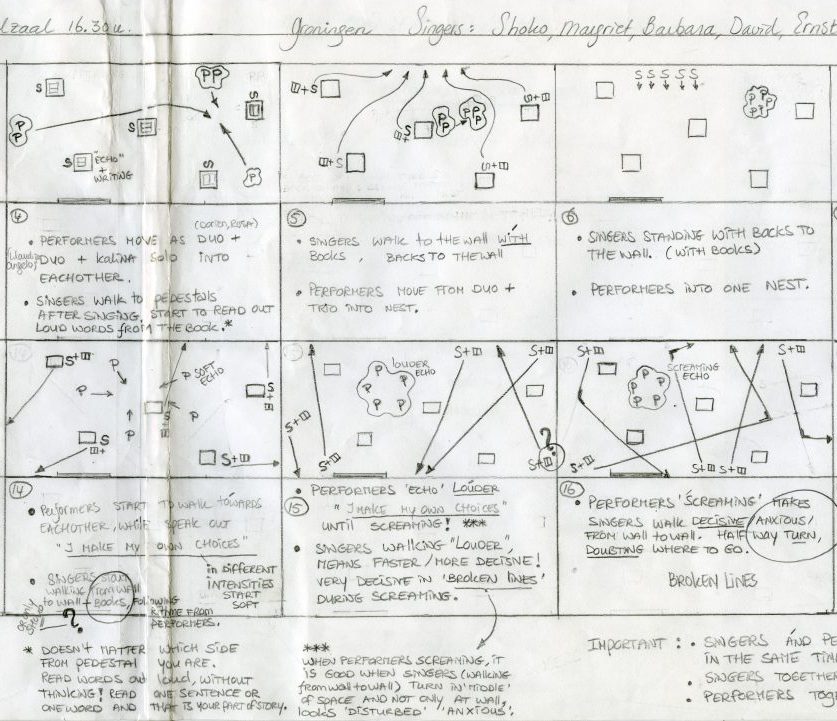 lzaal 16.30u.
Groningen Singers: Shoko, Margriet, Barbara, David, Ernst
PP
S
S
P
P
S
S "ECHO"
+
WRITING
S
P
S
S+
S+
P
P
S+
+S
S+
S S S S S
P P
P P
P
4
(Dorien, Rosa)
• PERFORMERS MOVE AS DUO +
DUO + KALINA SOLO INTO
EACHOTHER.
• SINGERS WALK TO PEDESTALS
AFTER SINGING, START TO READ OUT
LOUD WORDS FROM THE BOOK.*
5
• SINGERS WALK to the WALL WITH
BOOKS, BACKS TO THE WALL
• PERFORMERS MOVE FROM DUO +
TRIO INTO NEST.
6
• SINGERS STANDING WITH BACKS TO
THE WALL. (WITH BOOKS)
• PERFORMERS INTO ONE NEST.
S+
P
P
P
P
P SOFT
ECHO
S
+
S
S+
S+
LOUDER
ECHO
P
P
P
P
P
S+
S+
S+
S+
?
S+
S+
SCREAMING
ECHO
S+
P
P
P
P
P
S+
S+
S+
14
• Performers START TO WALK towards
EACHOTHER, WHILE SPEAK OUT
"I MAKE MY OWN CHOICES"
in DIFFERENT
INTENSITIES
START
SOFT
• SINGERS START
WALKING from WALL
to WALL + BOOKS, FOLLOWING
FROM
PERFORMERS.
?
15
• PERFORMERS 'ECHO' LOUDER
"I MAKE MY OWN CHOICES"
UNTIL SCREAMING! ***
• SINGERS WALKING "LOUDER",
MEANS FASTER / MORE DECISIVE!
VERY DECISIVE IN 'BROKEN LINES'
DURING SCREAMING.
16
• PERFORMERS 'SCREAMING' MAKES
SINGERS WALK DECISIVE / ANXIOUS /
FROM WALL to WALL. HALF WAY TURN,
DOUBTING WHERE TO GO.
BROKEN LINES
* DOESN'T MATTER WHICH SIDE
FROM PEDESTAL YOU ARE.
READ WORDS OUT LOUD, WITHOUT
THINKING! READ ONE SENTENCE OR
ONE WORD AND THAT IS YOUR PART OF STORY.
***
WHEN PERFORMERS SCREAMING, IT
IS GOOD WHEN SINGERS (WALKING
from WALL to WALL) TURN IN 'MIDDLE'
of SPACE AND NOT ONLY AT WALL,
LOOKS 'DISTURBED' / 'ANXIOUS'.
IMPORTANT: • SINGERS AND PE
IN THE SAME TIM
• SINGERS TOGETHER
• PERFORMERS TOG